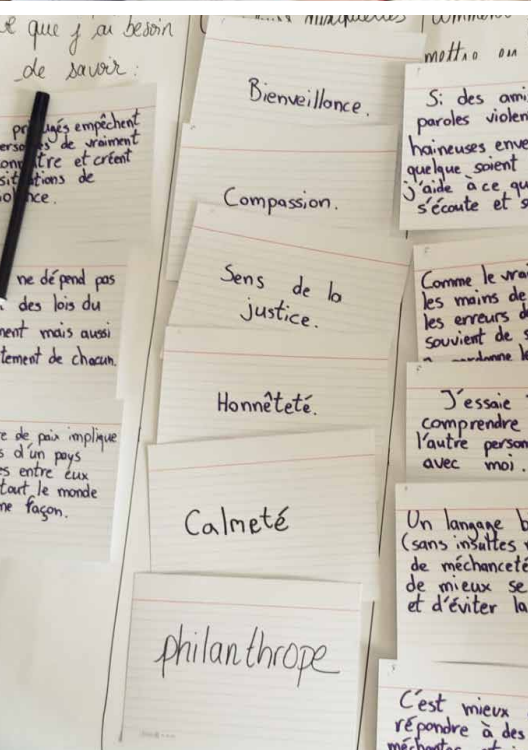 que j'ai besoin
de savoir :
préjugés empêchent
de vraiment
et créent
de
ne dépend pas
des lois du
mais aussi
de chacun.
de paix implique
d'un pays
entre eux
tout le monde
façon.
Bienveillance.
Compassion.
Sens de la
justice.
Honnêteté.
Calmeté
philanthrope
mettre en
Si des ami
paroles violen
haineuses enve
quelque soient
j'aide à ce qu
s'écoute et s
Comme le vrai
les mains de
les erreurs d
souvient de s
le
J'essaie
comprendre
l'autre person
avec moi.
Un langage b
(sans insultes
de méchanceté
de mieux se
et d'éviter la
C'est mieux
répondre à des